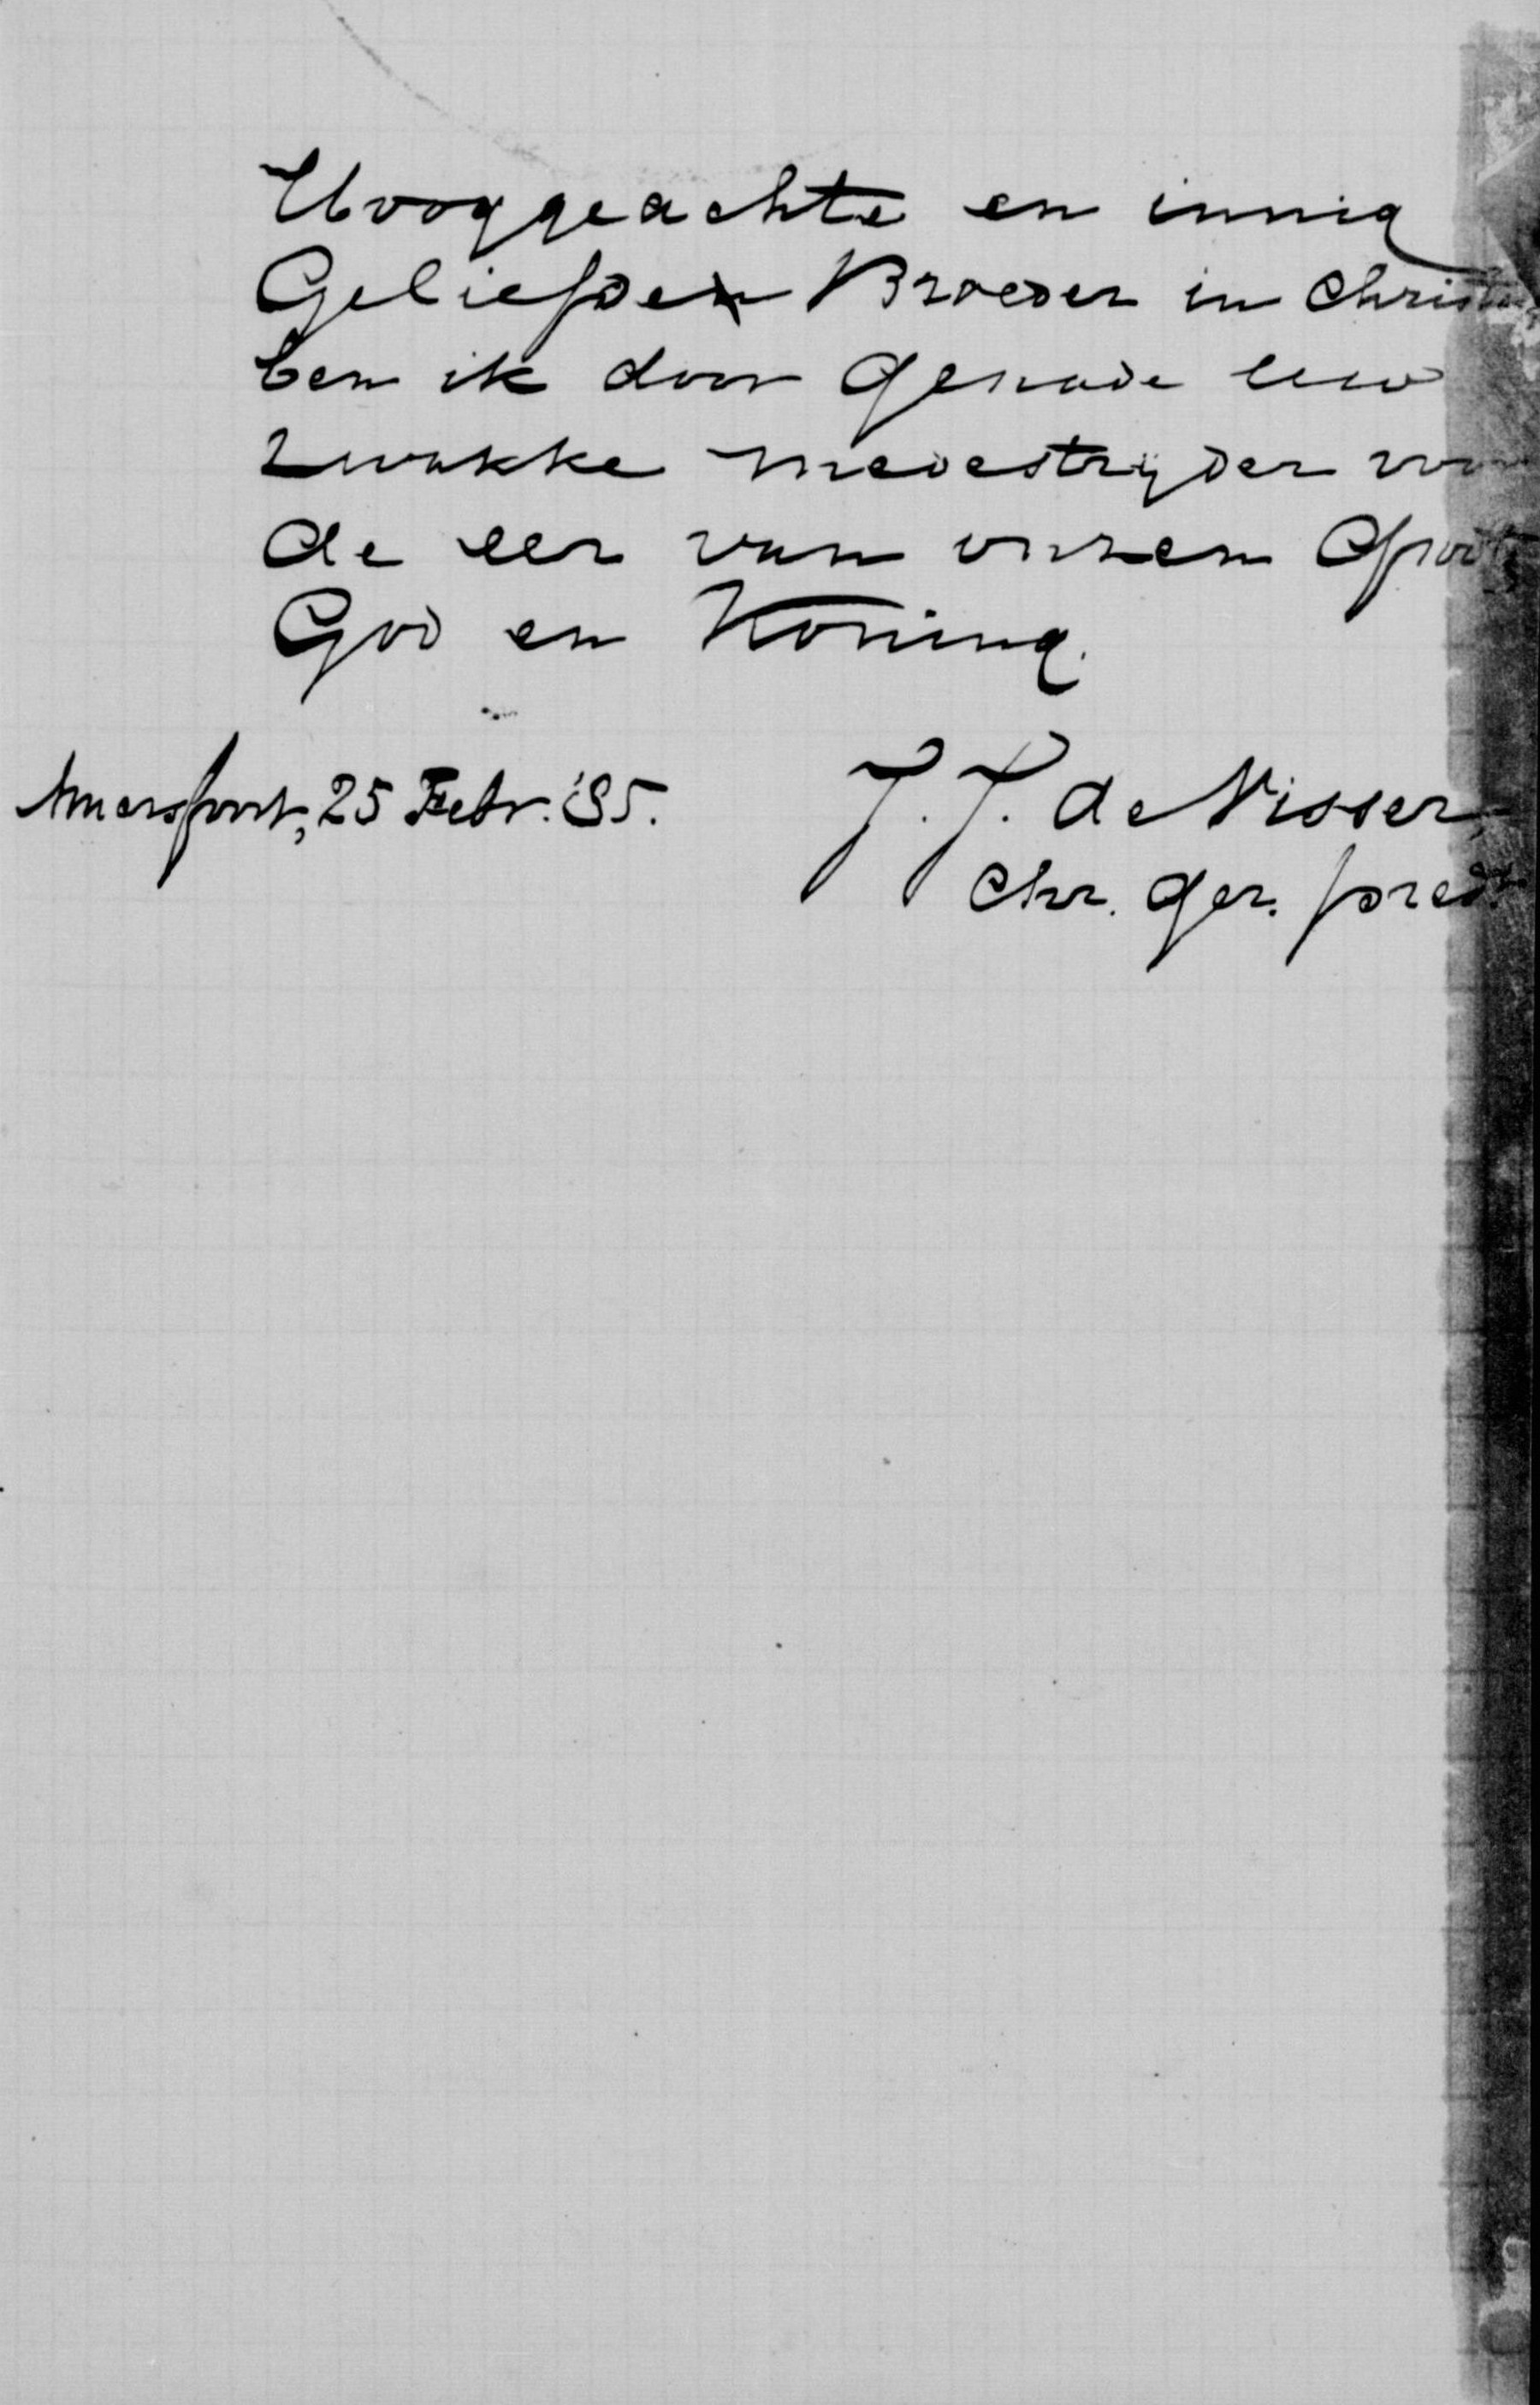 Hooggeachte en innig
Geliefde Broeder in Christus,
ben ik door Genade Uw
zwakke medestrijder voor
de eer van onzen Groot
God en Koning.
Amersfoort, 25 Febr. '85.
J. J. de Visser,
Chr. Ger. pred.